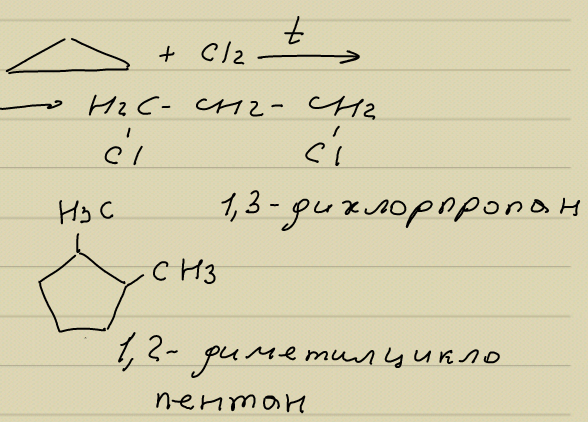 + Cl2 t →
→ H2C - CH2 - CH2
Cl Cl
1,3-дихлорпропан
H3C
CH3
1,2- диметилцикло
пентан